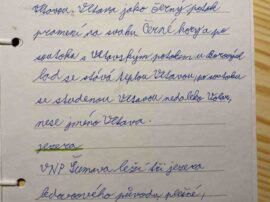 Vltavou. Vltava jako Černý potok
pramení na svahu Černé hory a po
soutoku s Vltavským potokem u Borových
lad se stává teplou Vltavou, po soutoku
se studenou Vltavou nedaleko Volar,
nese jméno Vltava.
jezera
V NP Šumava leží tři jezera
ledovcového původu plešné,